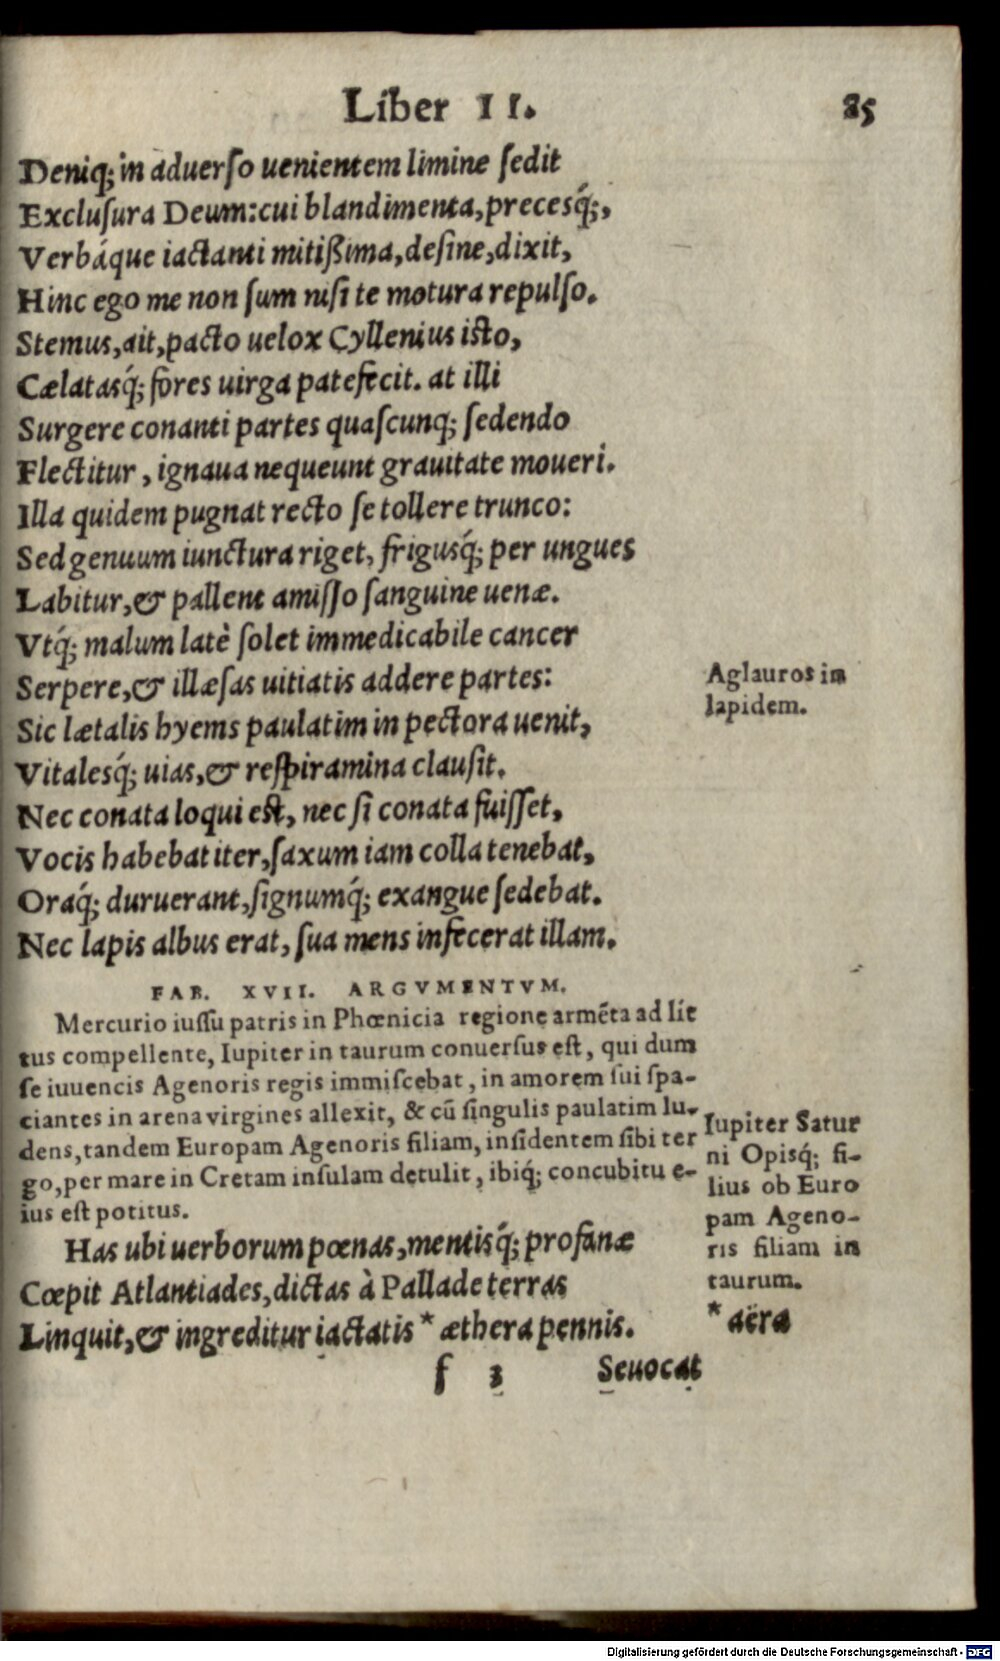 Liber II. 85
Deniq; in aduerſo uenientem limine ſedit
Excluſura Deum: cui blandimenta, preceſq́;,
Verbáque iactanti mitißima, deſine, dixit,
Hinc ego me non ſum niſi te motura repulſo.
Stemus, ait, pacto uelox Cyllenius iſto,
Cælatasq́; fores uirga patefecit. at illi
Surgere conanti partes quaſcunq; ſedendo
Flectitur, ignaua nequeunt grauitate moueri.
Illa quidem pugnat recto ſe tollere trunco:
Sed genuum iunctura riget, frigusq́; per ungues
Labitur, & pallent amiſſo ſanguine uenæ.
Vtq́; malum latè ſolet immedicabile cancer
Serpere, & illæſas uitiatis addere partes:
Sic lætalis hyems paulatim in pectora uenit,
Vitalesq́; uias, & reſpiramina clauſit.
Nec conata loqui eſt, nec ſi conata fuiſſet,
Vocis habebat iter, ſaxum iam colla tenebat,
Oraq́; duruerant, ſignumq́; exangue ſedebat.
Nec lapis albus erat, ſua mens infecerat illam.
Aglauros in
lapidem.
FAB. XVII. ARGVMENTVM.
Mercurio iuſſu patris in Phœnicia regione armēta ad lit
tus compellente, Iupiter in taurum conuerſus eſt, qui dum
ſe iuuencis Agenoris regis immiſcebat, in amorem ſui ſpa-
ciantes in arena virgines allexit, & cū ſingulis paulatim lu-
dens, tandem Europam Agenoris filiam, inſidentem ſibi ter
go, per mare in Cretam inſulam detulit, ibiq́; concubitu e-
ius eſt potitus.
Iupiter Satur
ni Opisq́; fi-
lius ob Euro
pam Ageno-
ris filiam in
taurum.
Has ubi uerborum pœnas, mentisq́; profanæ
Cœpit Atlantiades, dictas à Pallade terras
Linquit, & ingreditur iactatis * æthera pennis.
* aëra
f 3 Seuocat
Digitalisierung gefördert durch die Deutsche Forschungsgemeinschaft - DFG